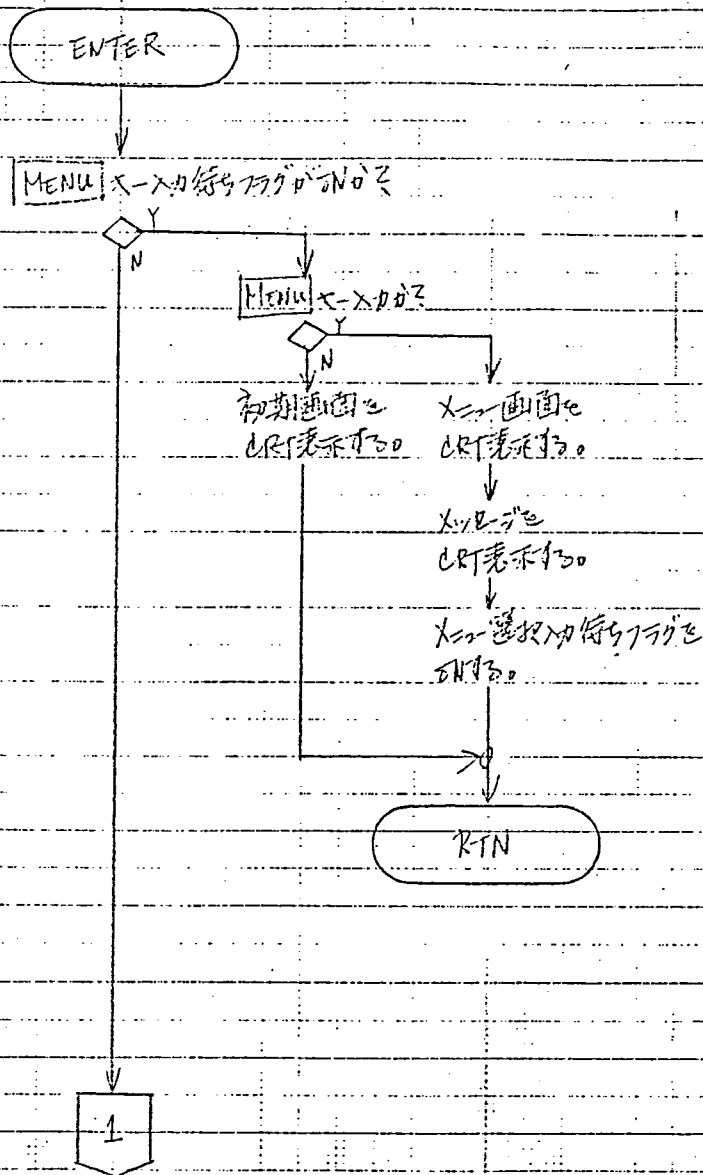 ENTER
MENU キー入力待ちフラグがONか?
Y
N
MENU キー入力か?
Y
N
初期画面を
CRT表示する。
メニュー画面を
CRT表示する。
メッセージを
CRT表示する。
メニュー選択入力待ちフラグを
ONする。
RTN
1